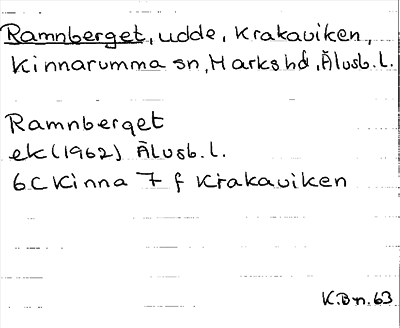 Ramnberget, udde, Krakaviken,
Kinnarumma sn, Marks hd, Älvsb. l.
Ramnberget
ek (1962) Älvsb. l.
6 C Kinna 7 f Krakaviken
K.Bn. 63